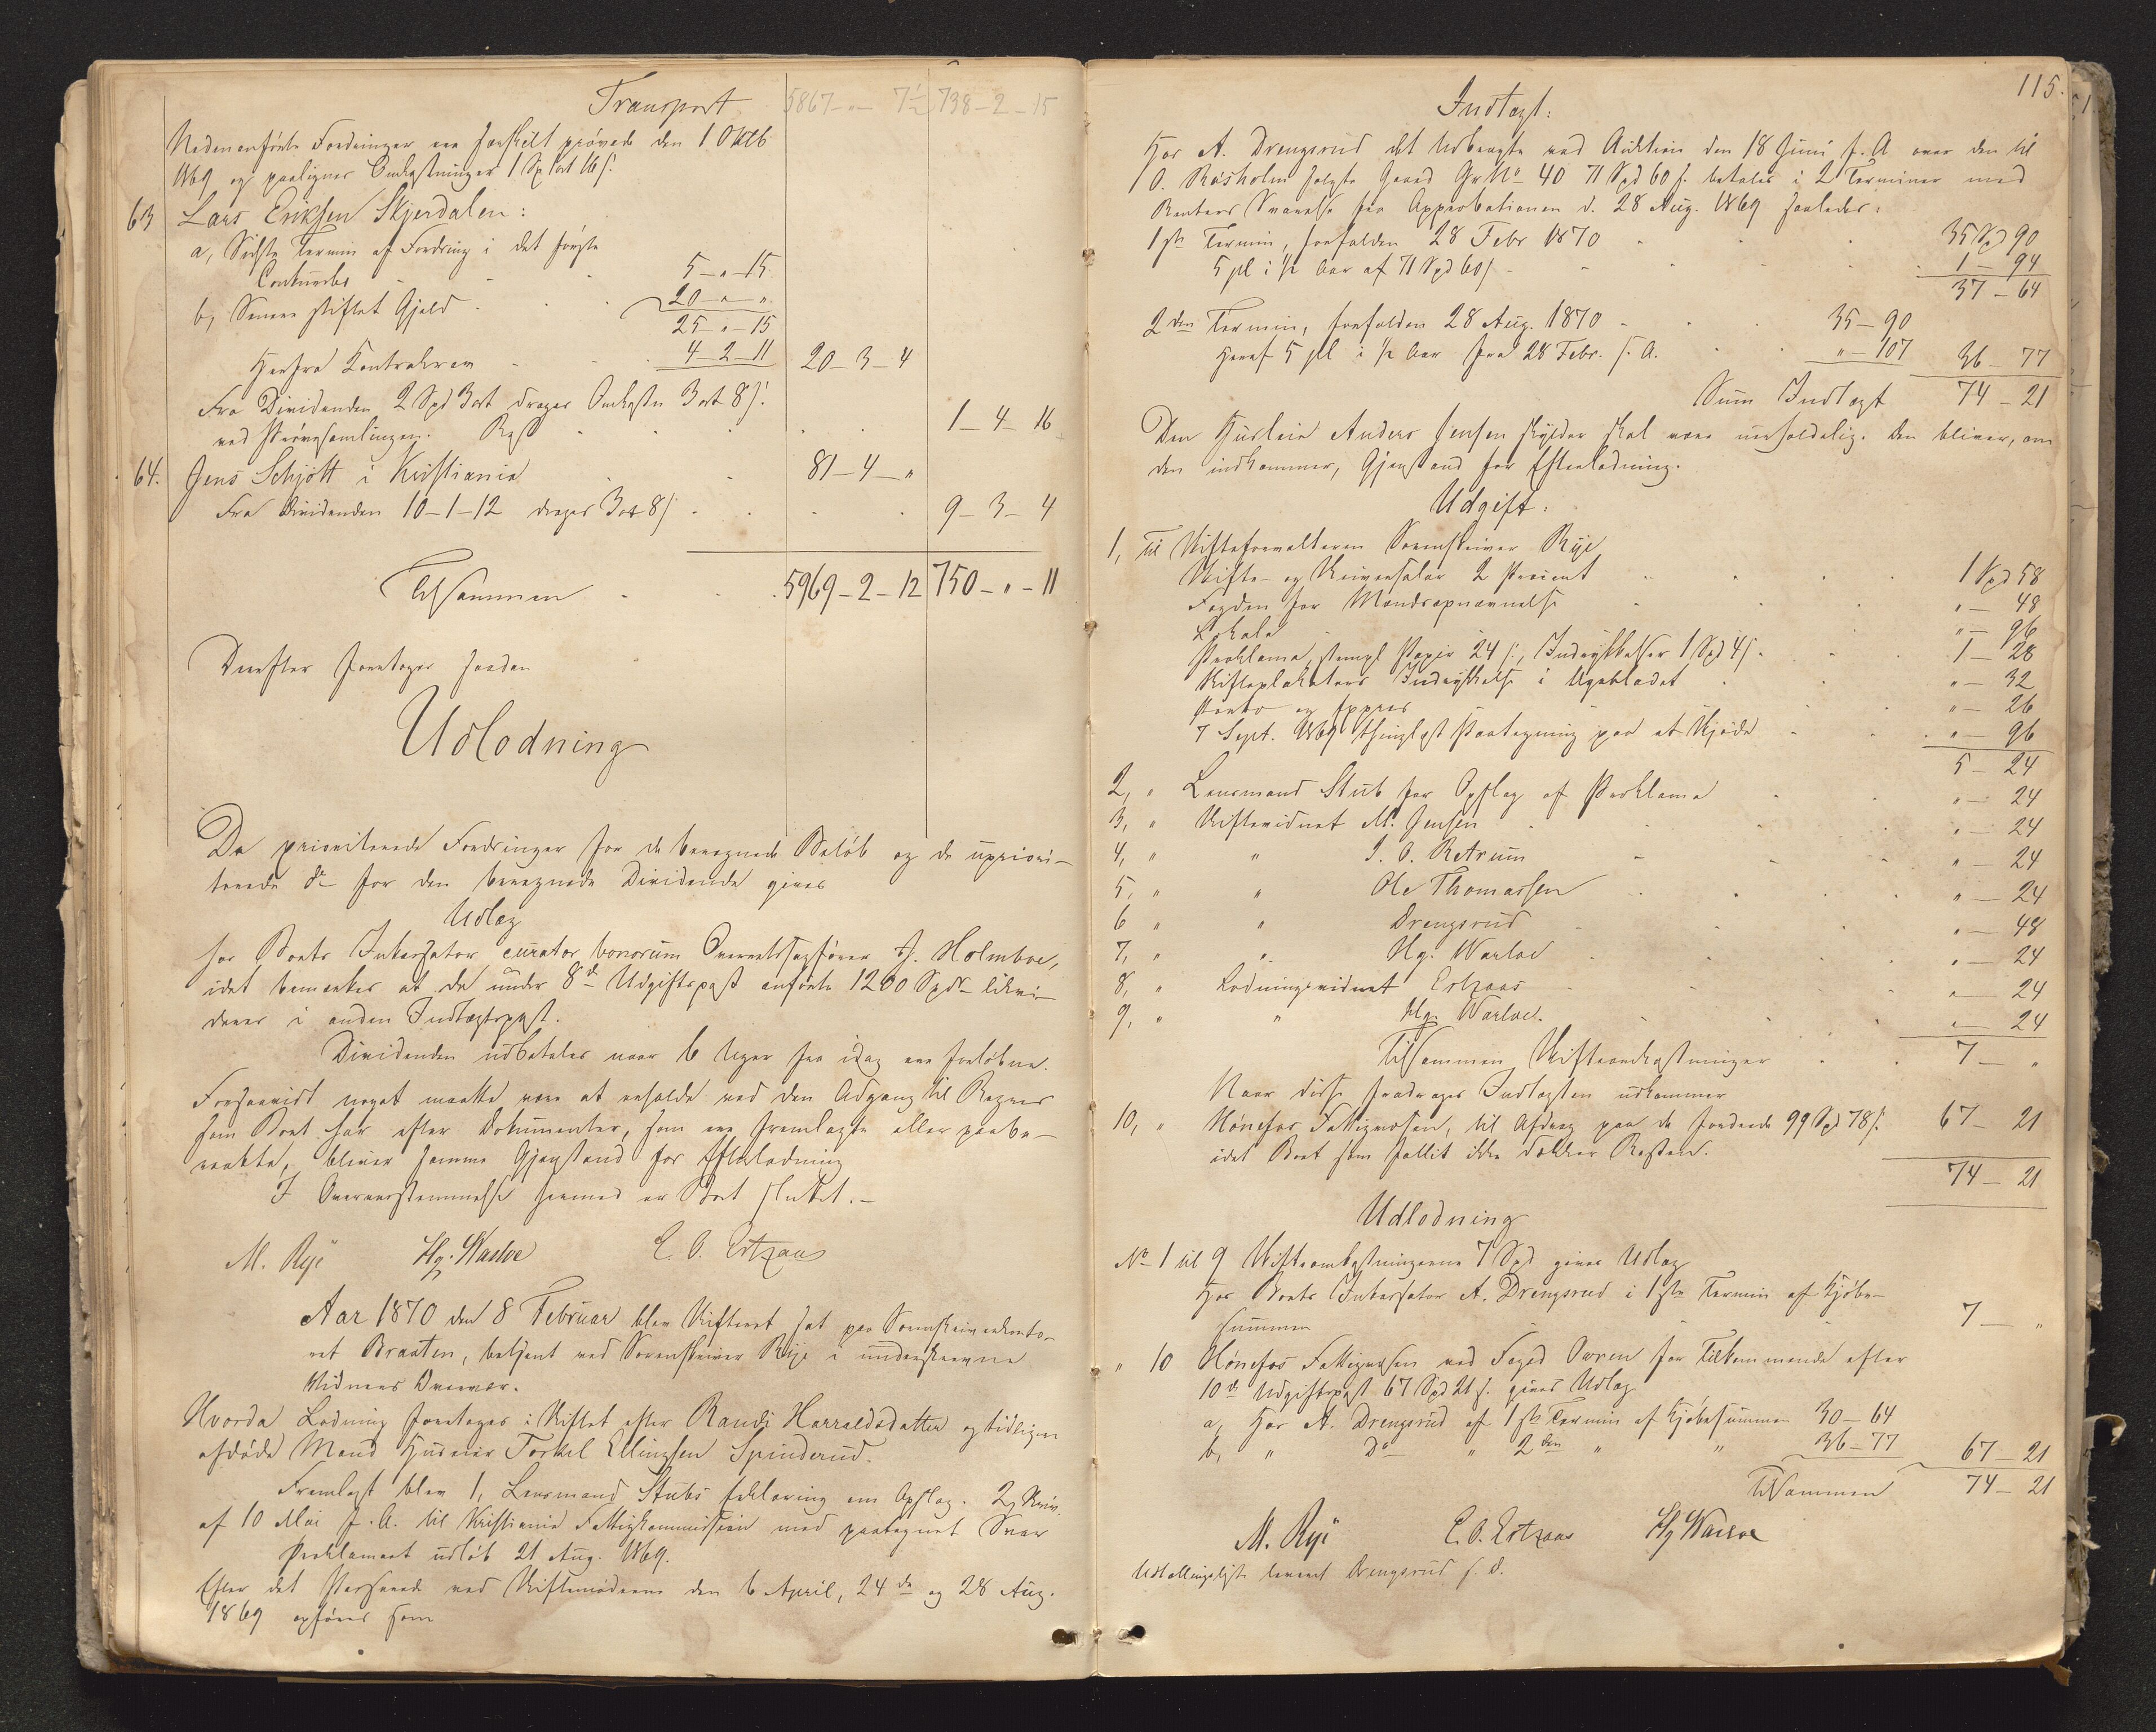 Transport 5867 - " - 7½ 738 - 2 - 15
Nedenanførte Fordringer ere særskilt prøvede den 1 Oktb
1869 og paaligner Omkostninger 1 Sp 1 ort 16 s.
63 Lars Eriksen Skjerdalen:
a, Sidste Termin af Fordring i det første
Conkursbo - - 5 - " - 15
b, Senere stiftet Gjeld - - 20 - " - "
25 - " - 15
Herfra Kontrakrav - 4 - 2 - 11 20 - 3 - 4
Fra Dividenden 2 Spd 3 ort drages Omkostn 3 ort 8 s.
ved Prøvesamlingen. Rest - - - 1 - 4 - 16
64. Jens Schjøtt i Kristiania - 81 - 4 - "
Fra Dividenden 10 - 1 - 12 drages 3 ort 8 s - - - 9 - 3 - 4
Tilsammen - - 5969 - 2 - 12 750 - " - 11
Derefter foretages saadan
Udlodning
De prioriterede Fordringer for de beregnede Beløb og de upriori-
terede do for den beregnede Dividende gives
Udlæg
hos Boets Inkassator curator bonorum Overretssagfører J. Holmboe,
idet bemærkes at de under 8de Udgiftspost anførte 1200 Spdr likvi-
deres i anden Indtægtspost.
Dividenden udbetales naar 6 Uger fra idag ere forløbne.
Forsaavidt noget maatte være at erholde ved den Adgang til Regres
som Boet har efter Dokumenter, som ere fremlagte eller paabe-
raabte, bliver samme Gjenstand for Efterlodning
I Overensstemmelse hermed er Boet sluttet. -
M. Rye Hg. Warloe E. O. Ertzaas
Aar 1870 den 8 Februar blev Skifteret sat paa Sorenskriverkonto-
ret Braaten, betjent ved Sorenskriver Rye i underskrevne
Vidners Overvær.
Hvorda Lodning foretages i Skiftet efter Randi Harraldsdatter og tidligere
afdøde Mand Huseier Torkel Ellingsen Spinderud.
Fremlagt blev 1, Lensmand Stubs Erklæring om Opslag. 2,
af 10 Mai f. A. til Kristiania Fattigkommission med paategnet Svar
Proklamaet udløb 21 Aug. 1869.
Efter det Passerede ved Skiftemøderne den 6 April, 24de og 28 Aug.
1869 opføres som
115.
Indtægt:
Hos A. Drengsrud det Udbragte ved Auktion den 18 Juni f. A over den til
O. Røsholm solgte Gaard Gr No 40 71 Spd 60 s. betales i 2 Terminer med
Renters Svarelse fra Approbationen d. 28 Aug. 1869 saaledes:
1ste Termin, forfalden 28 Febr 1870 - - - 35 Spd 90
5 pCt i ½ Aar af 71 Spd 60 s - - - 1 - 94
37 - 64
2den Termin, forfalden 28 Aug. 1870 - - 35 - 90
Heraf 5 pCt i ½ Aar fra 28 Febr. s. A. - - " - 107 36 - 77
Sum Indtægt 74 - 21
Den Husleie Anders Jensen skylder skal være uerholdelig. Den bliver, om
den indkommer, Gjenstand for Efterlodning.
Udgift:
1, Til Skifteforvalteren Sorenskriver Rye
Skifte- og Skriversalær 2 Procent - - - 1 Spd 58
Fogden for Mandsopnævnelse - - " - 48
Lokale " - 96
Proklama, stempl Papir 24 s., Indrykkelser 1 Spd 4 s - - 1 - 28
Skifteplakatens Indrykkelse i Ugebladet - - " - 32
Porto og Expres - " - 26
7 Sept. 1869 thinglæst Paategning paa et Skjøde - - " - 96
5 - 24
2, " Lensmand Stub for Opslag af Proklama - - " - 24
3, " Skiftevidnet M. Jensen - - - " - 24
4, " " I. O. Retrum - - " - 24
5, " " Ole Thomassen - - - " - 24
6 " " Drengsrud - - " - 48
7, " " Hg. Warloe - - - " - 24
8, " Lodningsvidnet Ertzaas - - " - 24
9, " " Hg. Warloe. - - " - 24
Tilsammen Skifteomkostninger - - 7 - "
Naar disse fradrages Indtægten udkommer
10, " Hønefos Fattigvæsen, til Afdrag paa de fordrede 99 Spd 78 s. 67 - 21
idet Boet som fallit ikke dækker Resten.
74 - 21
Udlodning
No 1 til 9 Skifteomkostningerne 7 Spd gives Udlæg
hos Boets Inkassator A. Drengsrud i 1ste Termin af Kjøbe-
summen - - 7 - "
" 10 Hønefos Fattigvæsen ved Foged Owren for Tilkommende efter
10de Udgiftspost 67 Spd 21 s. gives Udlæg
a, hos A. Drengsrud af 1ste Termin af Kjøbesummen 30 - 64
b, " Do " 2den " " 36 - 77 67 - 21
Tilsammen 74 - 21
M. Rye E. O. Ertzaas Hg Warloe
Udtællingsliste leveret Drengsrud s. D.